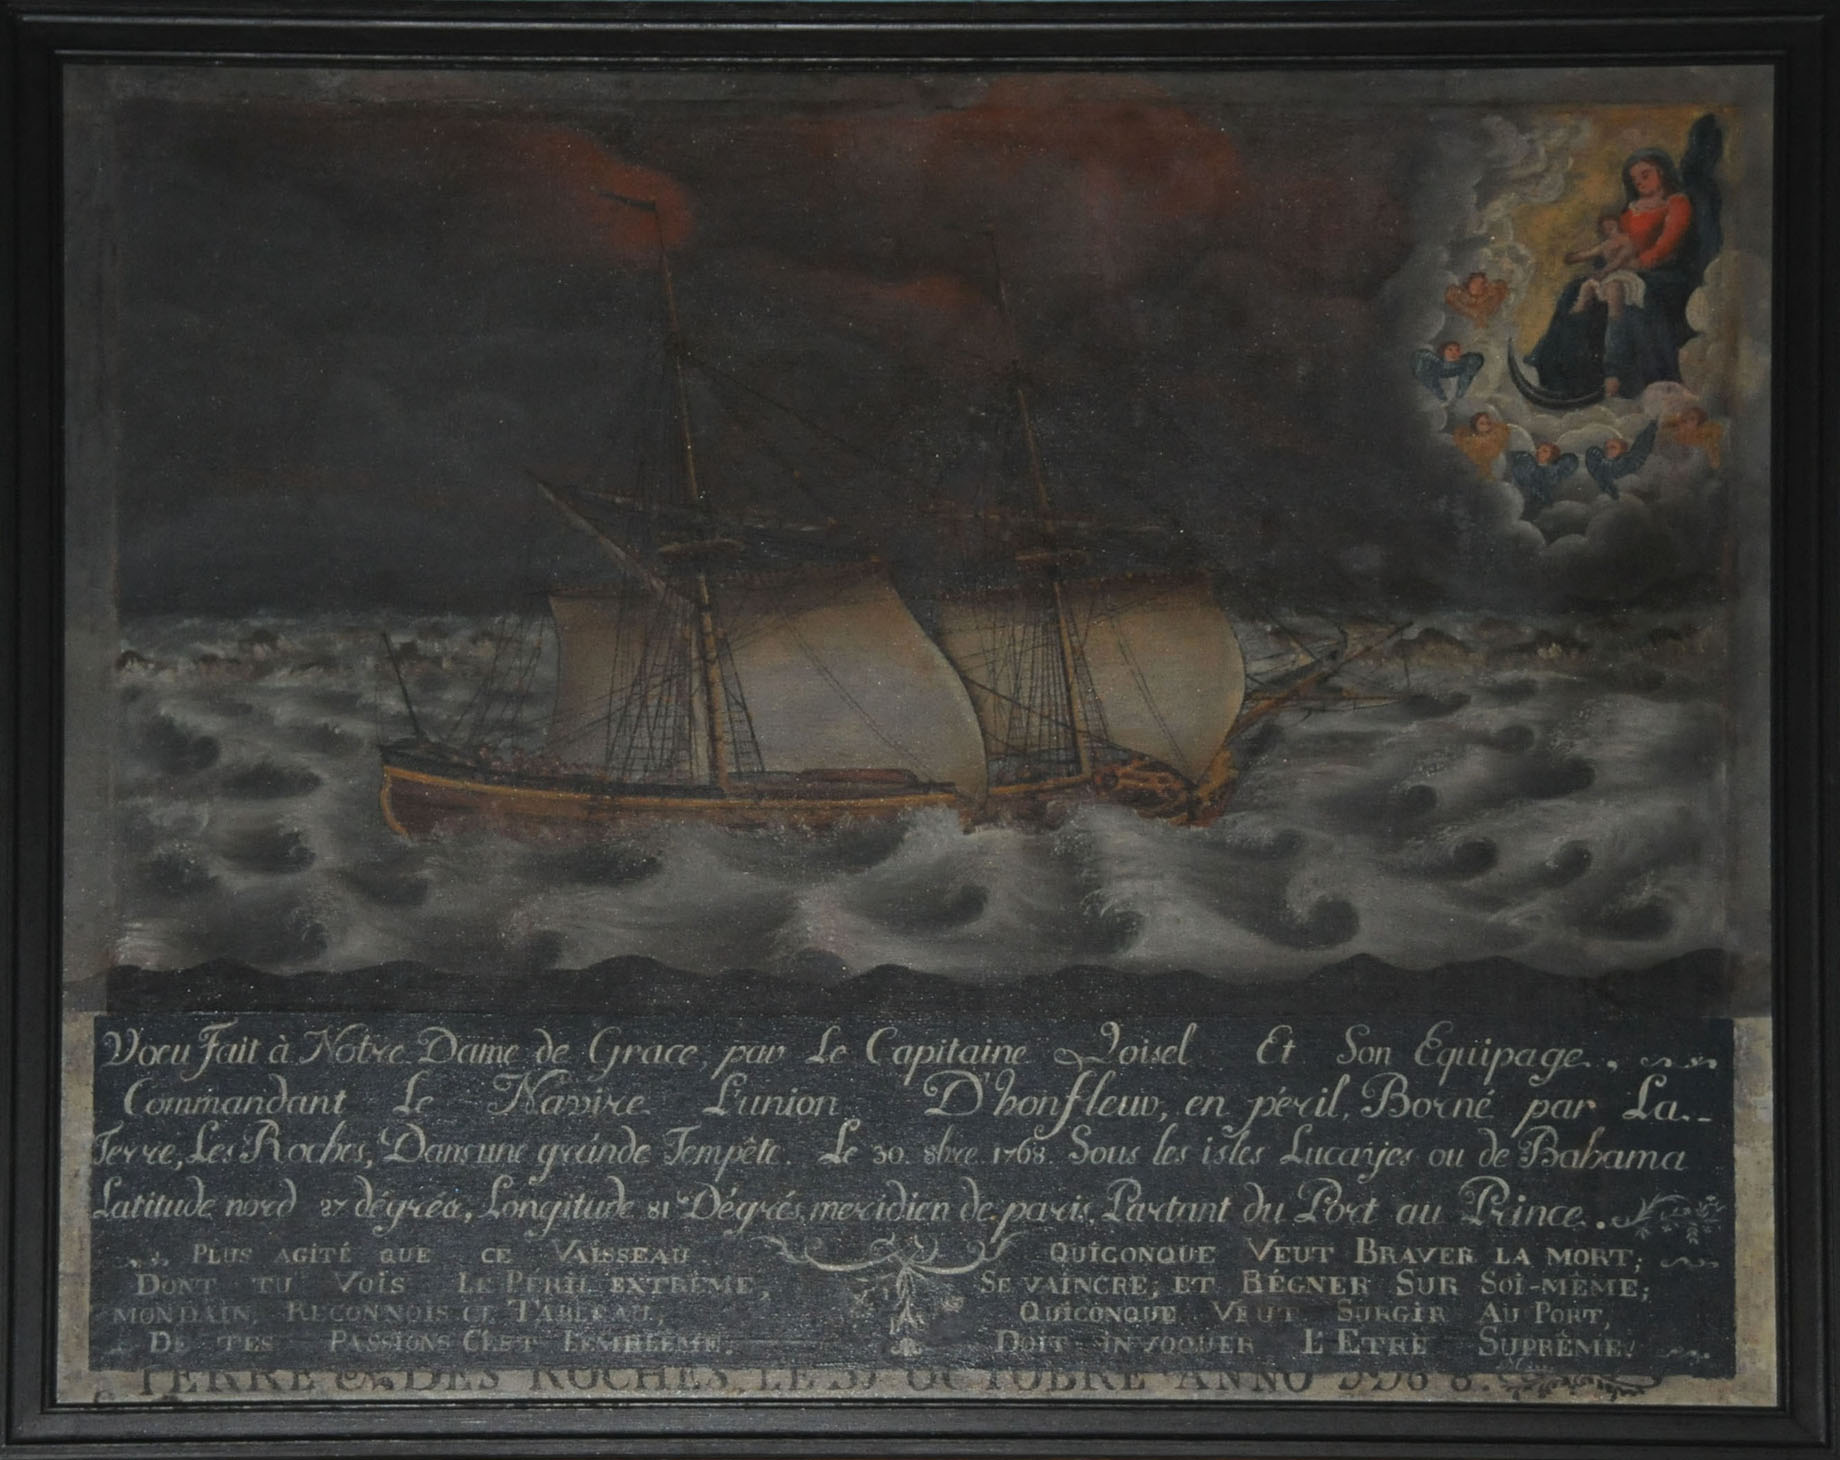 Voeu Fait à Notre Dame de Grace, par Le Capitaine Quoisel Et Son Equipage.,
Commandant Le Navire L'union D'honfleur, en péril, Borné par La
Terre, Les Roches, Dans une grande Tempête. Le 30. 8bre. 1768. Sous les isles Lucayes ou de Bahama
Latitude nord 27 dégrés, Longitude 81 Dégrés, meridien de paris, Partant du Port au Prince.
PLUS AGITÉ QUE CE VAISSEAU
DONT TU VOIS LE PÉRIL EXTRÊME,
MONDAIN, RECONNOIS CE TABLEAU,
DE TES PASSIONS C'EST L'EMBLÊME.
QUICONQUE VEUT BRAVER LA MORT;
SE VAINCRE, ET RÉGNER SUR SOI-MÊME;
QUICONQUE VEUT SURGIR AU PORT,
DOIT INVOQUER L'ETRE SUPRÊME.
TERRE & DES ROCHES, LE OCTOBRE ANNO